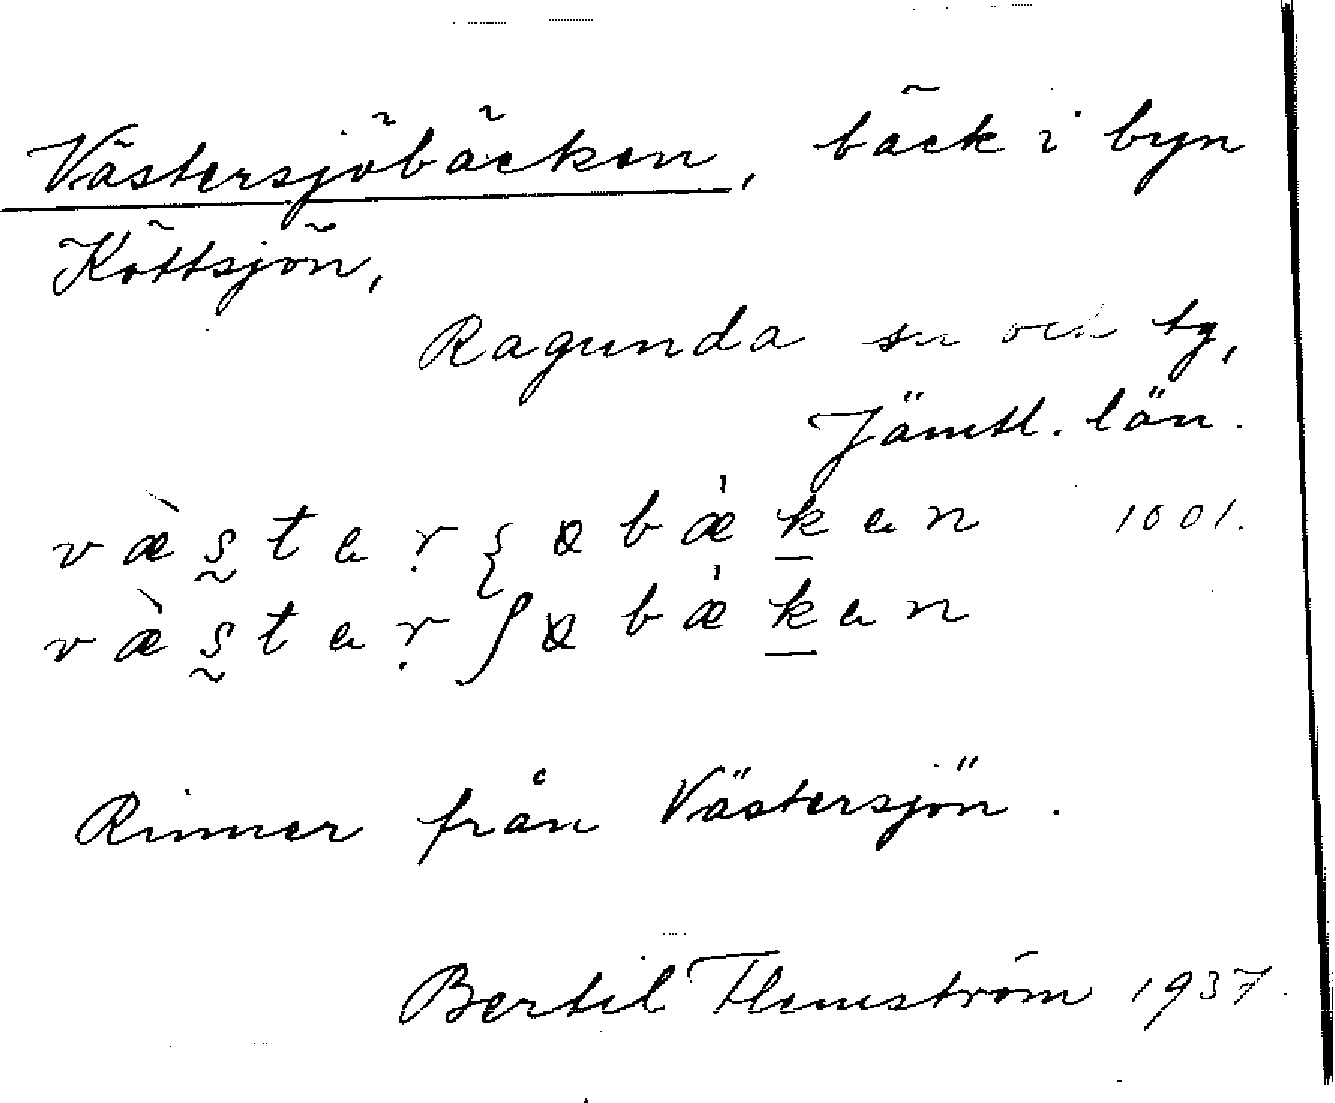 Västersjöbäcken, bäck i byn
Köttsjön,
Ragunda sn och tg,
Jämtl. län.
væ̀s̰tarξꞷbæ̍ḵan 1001.
væ̀s̰taṛʃꞷbæ̍ḵan
Rinner från Västersjön.
Bertil Flemström 1937.